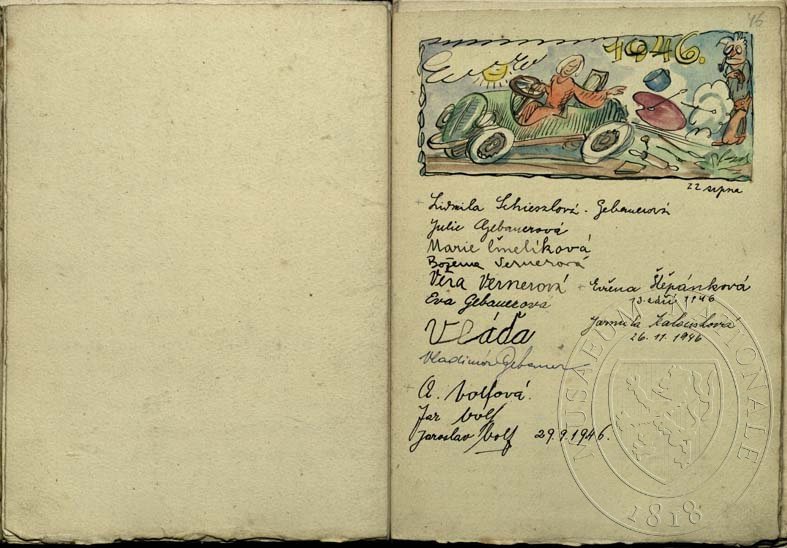 16
1946.
22 srpna
Lidmila Schieszlová-Gebauerová
Julie Gebauerová
Marie Čmelíková
Božena Vernerová
Věra Vernerová
Evžena Štěpánková
Eva Gebauerová
13. září 1946
Vláďa
Jarmila
26. 11. 1946
Vladimír Gebauer
A. Volfová.
Jar Volf
Jaroslav Volf 29.9.1946.
MUSAEUM NATIONALE
1818